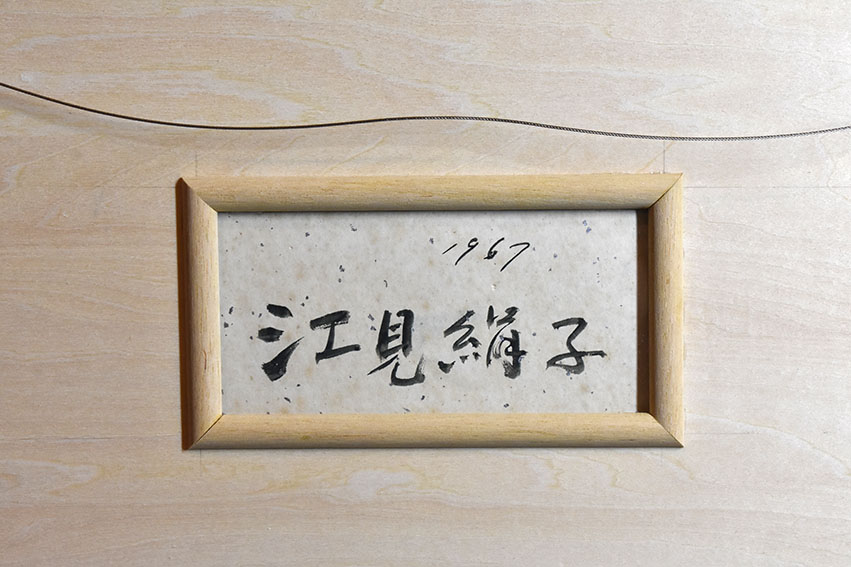 1967
江見絹子